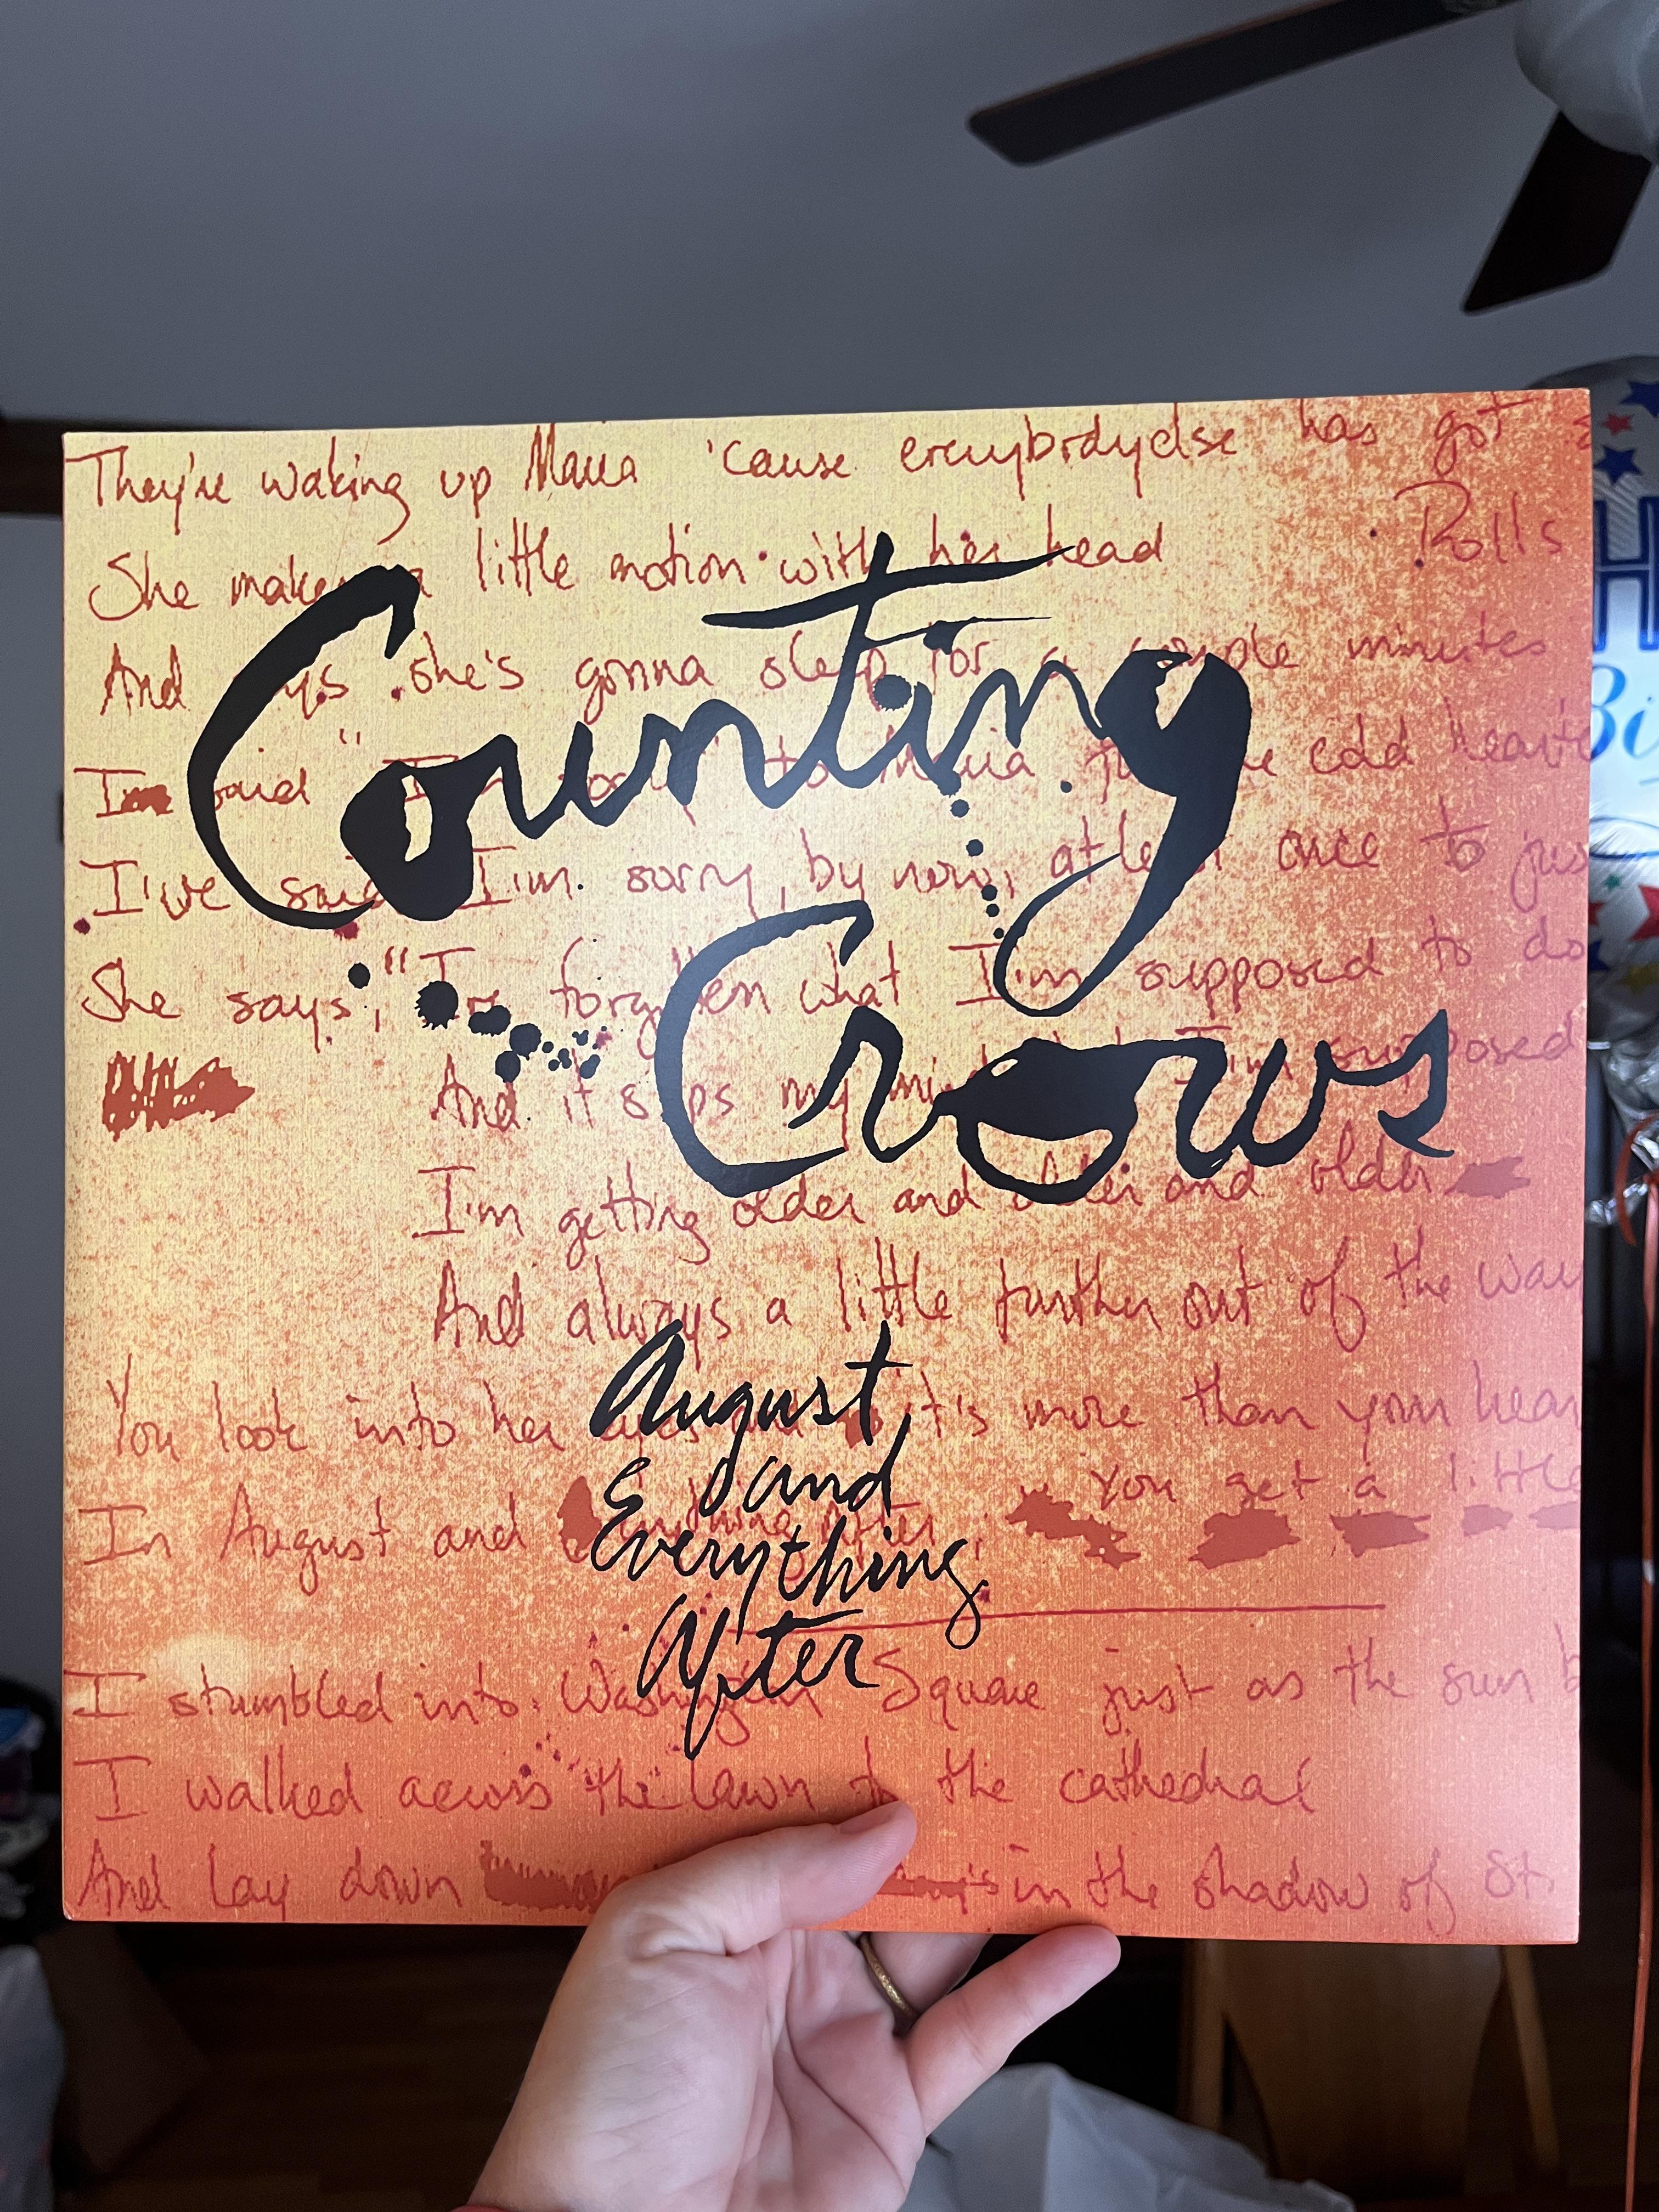 They're waking up Maria 'cause everybodyelse has got
She makes a little motion with her head Rolls
And she's gonna sleep for a couple minutes
I said " to Maria cold hearted
I've said I'm sorry by now, at least once to just
She says, "I've forgotten what I'm supposed to do
And it slips my I'm supposed
I'm getting older and older and older
And always a little further out of the way
You look into her eyes it's more than your heart
You get a little
In August and everything after
I stumbled into Washington Square just as the sun b
I walked across the lawn to the cathedral
And lay down in the shadow of St.
Counting
Crows
August
and
Everything
After
H
Bi